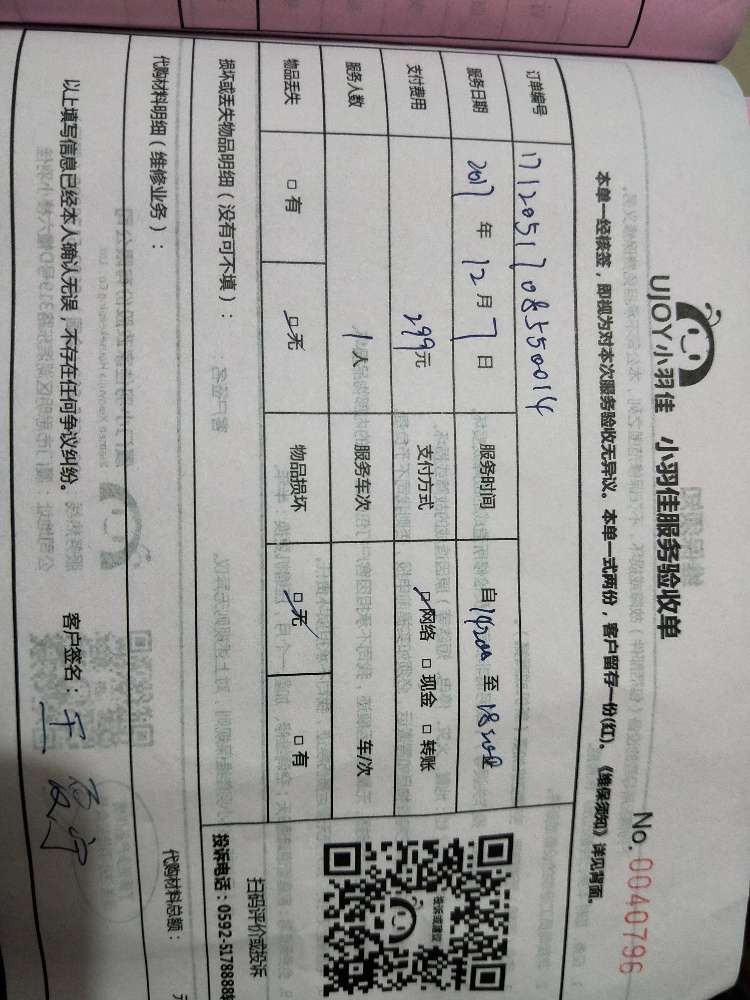 UJOY小羽佳 小羽佳服务验收单
No. 0040796
本单一经核签，即视为对本次服务验收无异议。本单一式两份，客户留存一份(红)。《维保须知》详见背面。
订单编号 1712051708550014
服务日期 2017 年 12 月 7 日 服务时间 自 至
支付费用 299元 支付方式 网络 □ 现金 □ 转账
服务人数 1人 服务车次 车/次
物品丢失 □ 有 □ 无 物品损坏 □ 无 □ 有
损坏或丢失物品明细（没有可不填）：
代购材料明细（维修业务）： 代购材料总额：
以上填写信息已经本人确认无误，不存在任何争议纠纷。 客户签名：
投诉或建议
扫码评价或投诉
投诉电话：0592-5178888